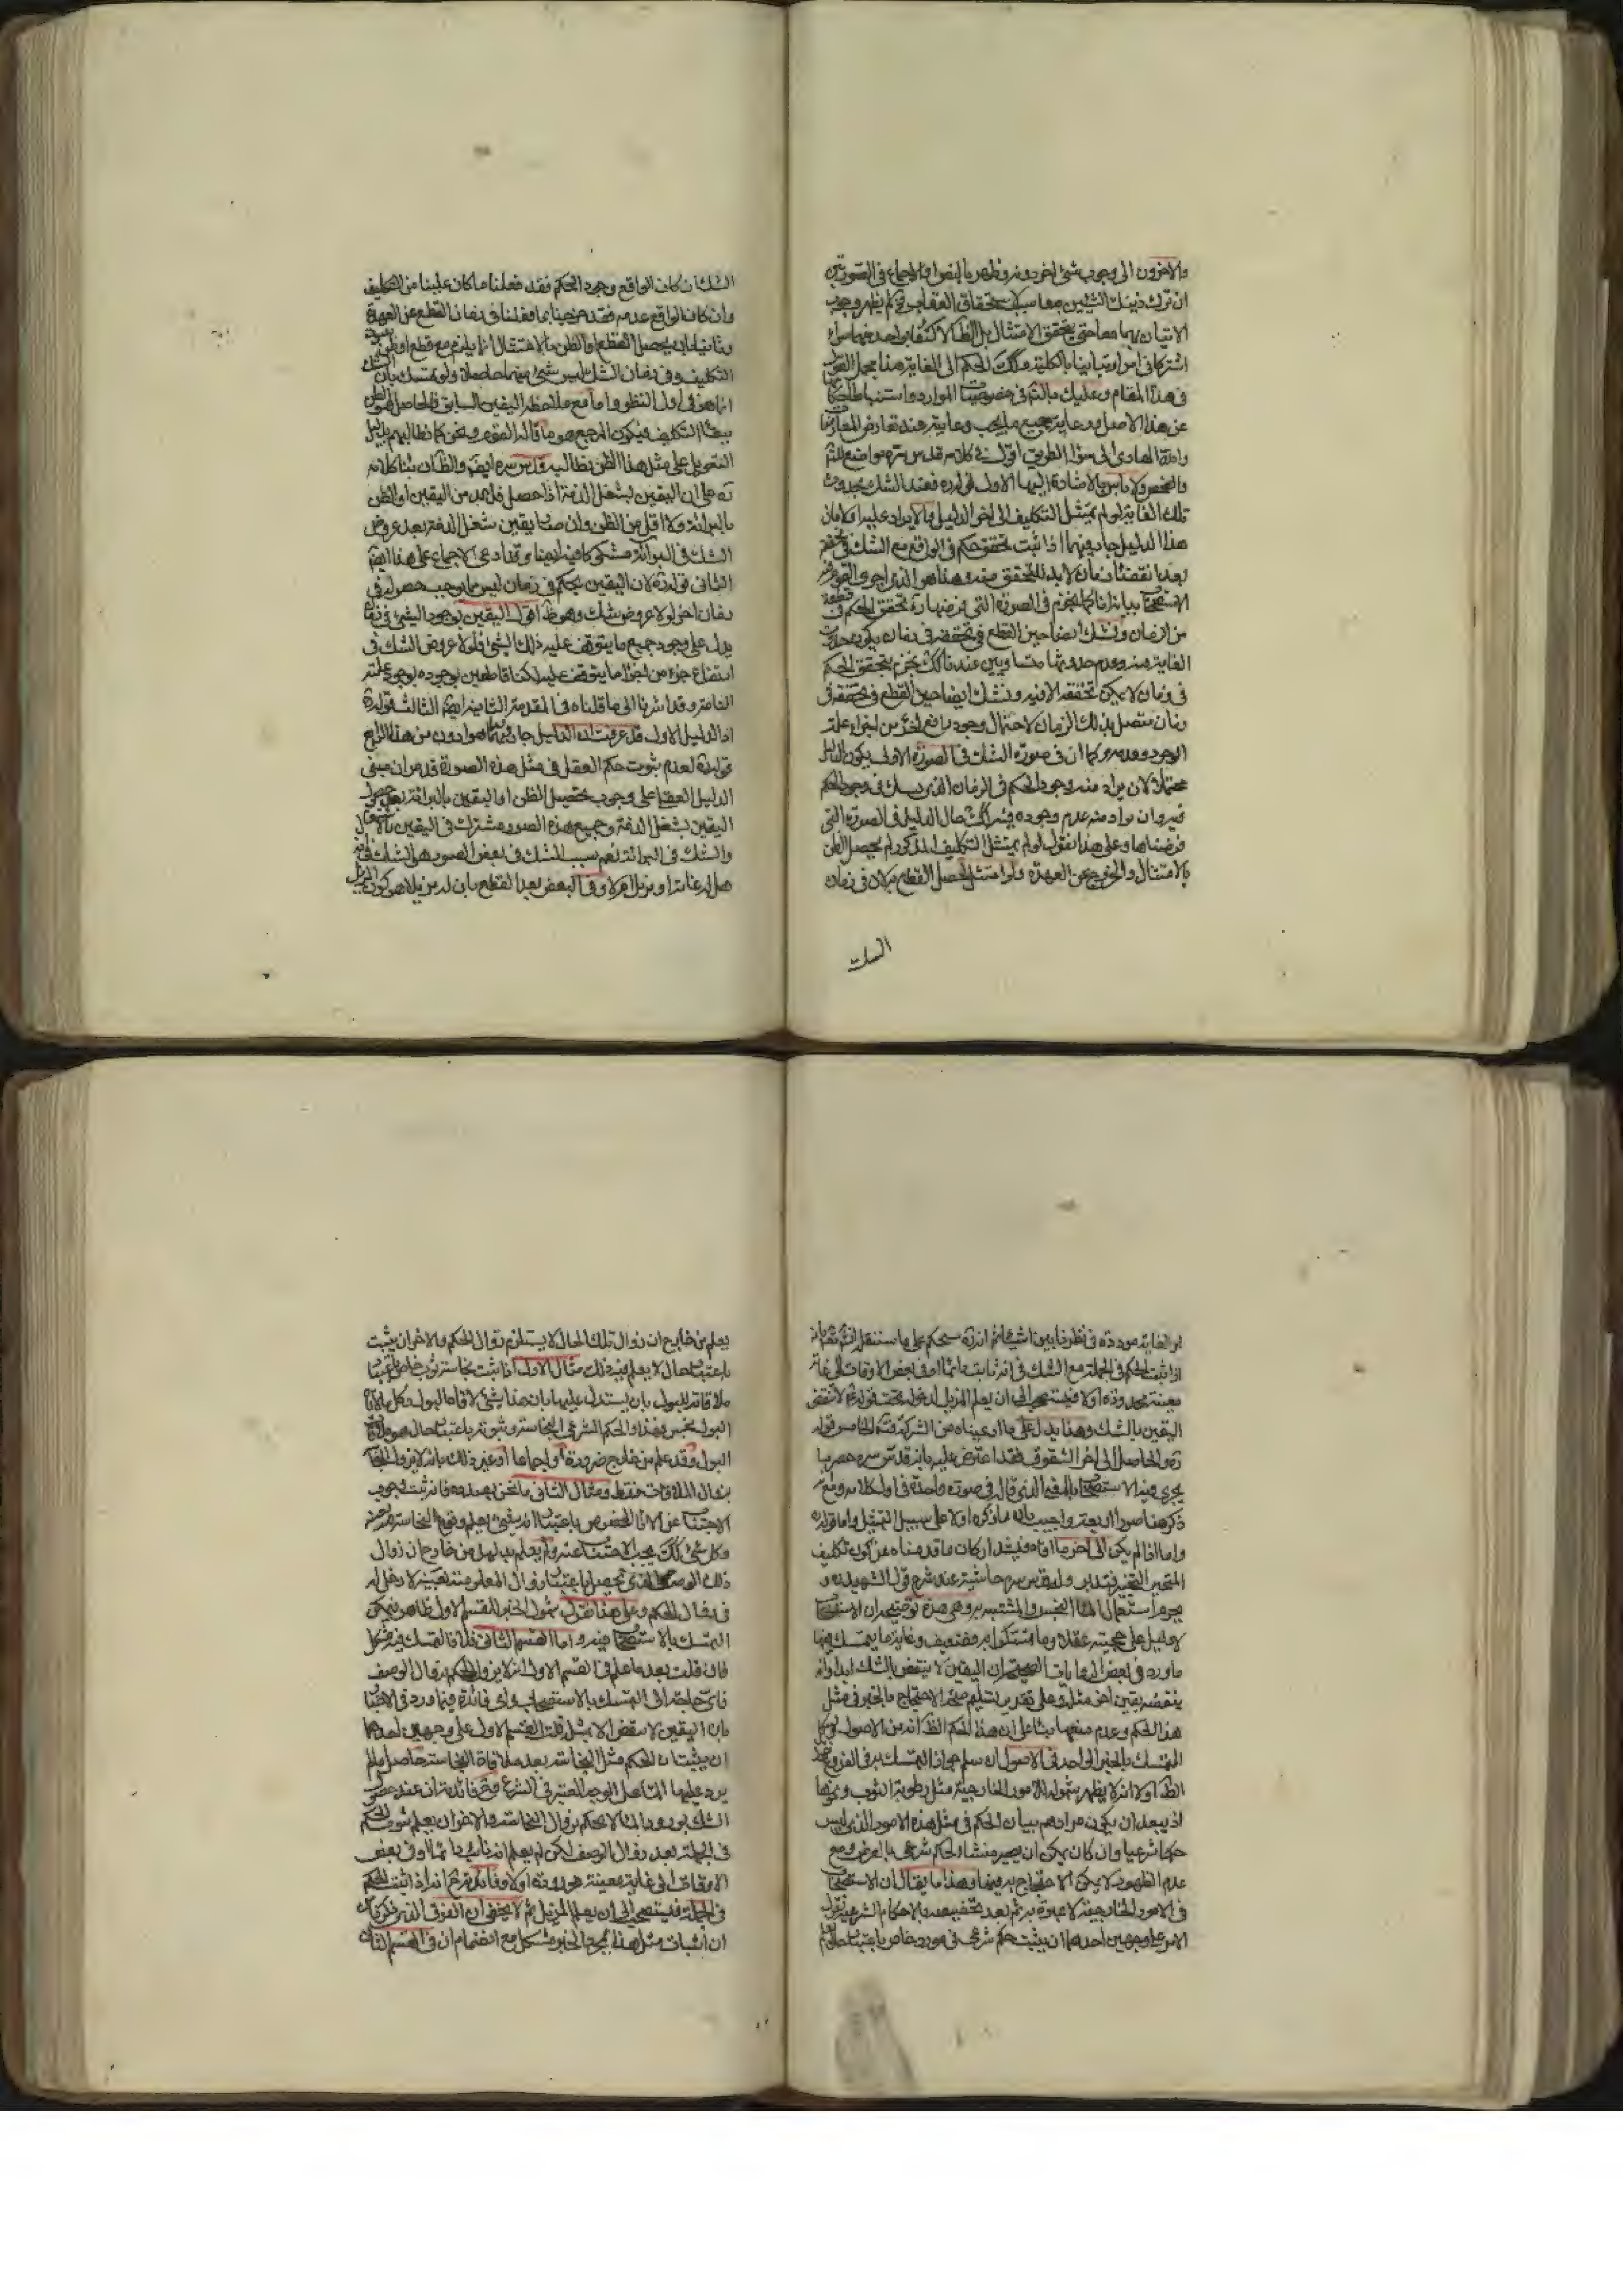 والاخرون الى وجوب شئ اخر دونه وظهر بالنص او الاجماع في الصورتين
ان ترك ذينك الشيئين معا سبب لاستحقاق العقاب ولم يظهر وجوب
الاتيان بهما معا حتى يتحقق الامتثال بل الظ الاكتفا بواحد منهما سواء
اشتركا في امر او تباينا بالكلية وكك الحكم الى الغاية هذا مجمل القول
في هذا المقام وعليك بالتأمل في خصوصيات الموارد واستنباط احكامها
عن هذا الاصل ورعاية جميع ما يجب رعايته عند تعارض المعارضات
والله الهادي الى سوا الطريق اقول في كلامه قدس سره مواضع للتأمل
والفحص ولا باس بالاشارة اليها الاول قوله ره فعند الشك بحدوث
تلك الغاية لو لم يمتثل التكليف الى اخر الدليل والايراد عليه اولا بان
هذا الدليل جار فيما اذا ثبت تحقق حكم في الواقع مع الشك في تحققه
بعد انقضاء زمان لا بد للتحقق منه وهذا هو الذي اجرى القوم فيه
الاستصحاب بيانه انا كما نجزم في الصورة التي فرضها ره بتحقق الحكم في قطعة
من الزمان ونشك ايضا حين القطع في تحققه في زمان يكون حدوث
الغاية فيه وعدم حدوثها متساويين عندنا كك نجزم بتحقق الحكم
في زمان لا يمكن تحققه الا فيه ونشك ايضا حين القطع في تحققه في
زمان متصل بذلك الزمان لاحتمال وجود رافع لجزء من اجزاء علة
الوجود وعدمه وكما ان في صورة الشك في الصورة الاولى يكون الدليل
محتملا لان يراد منه وجود الحكم في الزمان الذي يشك في وجود الحكم
فيه وان يراد منه عدم وجوده فيه كك حال الدليل في الصورة التي
فرضناها وعلى هذا نقول لو لم يمتثل التكليف المذكور لم يحصل الظن
بالامتثال والخروج عن العهدة ولو امتثل لحصل القطع به لان في زمان
الشك
الشك ان كان الواقع وجود الحكم فقد فعلنا ما كان علينا من التكليف
وان كان الواقع عدمه فقد خرجنا بما فعلنا في زمان القطع عن العهدة
وثانيا بان تحصيل القطع او الظن بالامتثال انما يلزم مع قطع او ظن بثبوت
التكليف وفي زمان الشك ليس شئ منهما حاصلا ولو تمسك بان الشك
انما هو في اول النظر واما مع ملاحظة اليقين السابق فالحاصل هو الظن
ببقاء التكليف فيكون المرجع هو ما قاله القوم ونحن كما نطالبهم بدليل
التعويل على مثل هذا الظن نطالبه قدس سره ايض والظ ان بناء كلامه
ره على ان اليقين بشغل الذمة اذا حصل فلا بد من اليقين او الظن
بالبرائة ولا اقل من الظن وان صار يقين شغل الذمة بعد عروض
الشك في البرائة مشكوكا فيه ايضا وقد ادعى الاجماع على هذا ايضا
الثاني قوله ره لان اليقين بحكم في زمان ليس مما يوجب حصوله في
زمان اخر لولا عروض شك وهو ظ اقول اليقين بوجود الشئ في زمان
يدل على وجود جميع ما يتوقف عليه ذلك الشئ فلولا عروض الشك في
انتفاء جزء من اجزاء ما يتوقف عليه لكنا قاطعين بوجوده لوجود علته
التامة وقد اشرنا الى ما قلناه في المقدمة الثانية ايضا الثالث قوله ره
اما الدليل الاول قد عرفت ان الدليل جار فيما هو ادون من هذا الرابع
قوله ره لعدم ثبوت حكم العقل في مثل هذه الصورة قد مر ان مبنى
الدليل العقلي على وجوب تحصيل الظن او اليقين بالبرائة بعد حصول
اليقين بشغل الذمة وجميع هذه الصور مشترك في اليقين بالاشتغال
والشك في البرائة نعم سبب الشك في بعض الصور هو الشك في انه
هل له غاية او مزيل ام لا وفي البعض بعد القطع بان له مزيلا هو كون المزيل
بر الغاية مرددة في نظرنا بين اشياء ثم انه ره سيحكم على ما سننقل انشاء تعالى بانه
اذا ثبت الحكم في الجملة مع الشك في انه ثابت دائما او في بعض الاوقات الى غاية
معينة محدودة ام لا فيستصحب الى ان يعلم المزيل لدخوله تحت قوله ع لا تنقض
اليقين بالشك وهذا يدل على ما ادعيناه من الشركة فت الخامس قوله
ره والحاصل الى اخر الشقوق فقد اعترض عليه بانه قدس سره حصر ما
يجري فيه الاستصحاب بالمعنى الذي قاله في صورة واحدة في اول كلامه ومع
ذكر هنا صورا اربعة واجيب بان ما ذكره اولا على سبيل التمثيل واما قوله
واما اذا لم يكن الى اخر ما افاده فيشدد اركان ما قدمناه من كون تكليف
المتحير التخيير فتدبر وله قدس سره حاشية عند شرح قول الشهيد ره و
يحرم استعمال الماء النجس والمشتبه وهي هذه توضيحه ان الاستصحاب
لا دليل على حجيته عقلا وما استدلوا به ضعيف وغاية ما يتمسك فيها
ما ورد في بعض الروايات الصحيحة ان اليقين لا ينقض بالشك ابدا وانما
ينقضه يقين اخر مثله وعلى تقدير تسليم صحة الاحتجاج بالخبر في مثل
هذا الحكم وعدم منعها بناء على ان هذا الحكم الظ انه من الاصول ويشكل
التمسك بالخبر الواحد في الاصول ان سلم جواز التمسك به في الفروع نقول
الظ اولا انه لا يظهر شموله للامور الخارجية مثل رطوبة الثوب ونحوها
اذ يبعد ان يكون مرادهم بيان الحكم في مثل هذه الامور الذي ليس
حكما شرعيا وان كان يمكن ان يصير منشاء لحكم شرعي بالعرض ومع
عدم الظهور لا يمكن الاحتجاج به فيها وهذا ما يقال ان الاستصحاب
في الامور الخارجية لا عبرة به ثم بعد تخصيصه بالاحكام الشرعية نقول
الامر على وجهين احدهما ان يثبت حكم شرعي في مورد خاص باعتبار حال
يعلم من خارج ان زوال تلك الحال لا يستلزم زوال الحكم والاخر ان يثبت
باعتبار حال لا يعلم فيه ذلك مثال الاول اذا ثبت نجاسة ثوب خاص باعتبار
ملاقاته للبول بان يستدل عليها بان هذا شئ لاقاه البول وكل ما لاقاه
البول نجس فهذا والحكم الشرعي النجاسة وثبوته باعتبار حال هو ملاقاة
البول وقد علم من خارج ضرورة او اجماعا او غير ذلك بانه لا يزول النجاسة
بزوال الملاقات فقط ومثال الثاني ما نحن بصدده فانه ثبت وجوب
الاجتناب عن الاناء المخصوص باعتبار انه شئ يعلم وقوع النجاسة فيه بعينه
وكل شئ كك يجب الاجتناب عنه ولم يعلم بدليل من خارج ان زوال
ذلك الوصف الذي يحصل باعتبار زوال المعلومية بعينه لا دخل له
في زوال الحكم وعلى هذا نقول شمول الخبر للقسم الاول ظاهر فيمكن
التمسك بالاستصحاب فيه واما القسم الثاني فالتمسك فيه مشكل
فان قلت بعد ما علم في القسم الاول انه لا يزول الحكم بزوال الوصف
فاي حاجة الى التمسك بالاستصحاب واي فائدة فيما ورد في الاخبار
بان اليقين لا ينقض الا بمثله قلت القسم الاول على وجهين احدهما
ان يثبت ان الحكم مثل النجاسة بعد ملاقاة النجاسة حاصل ما لم
يرد عليها الماء على الوجه المعتبر في الشرع وفائدته ان عند حصول
الشك بورود الماء لا يحكم بزوال النجاسة والاخر ان يعلم ثبوت الحكم
في الجملة بعد زوال الوصف لكن لم يعلم انه ثابت دائما او في بعض
الاوقات الى غاية معينة محدودة ام لا وفائدته ح انه اذا ثبت الحكم
في الجملة فيستصحب الى ان يعلم المزيل ثم لا يخفى ان الفرق الذي ذكرناه
ان اثبات مثل هذا بمجرد الخبر مشكل مع انضمام ان في القسم الثاني